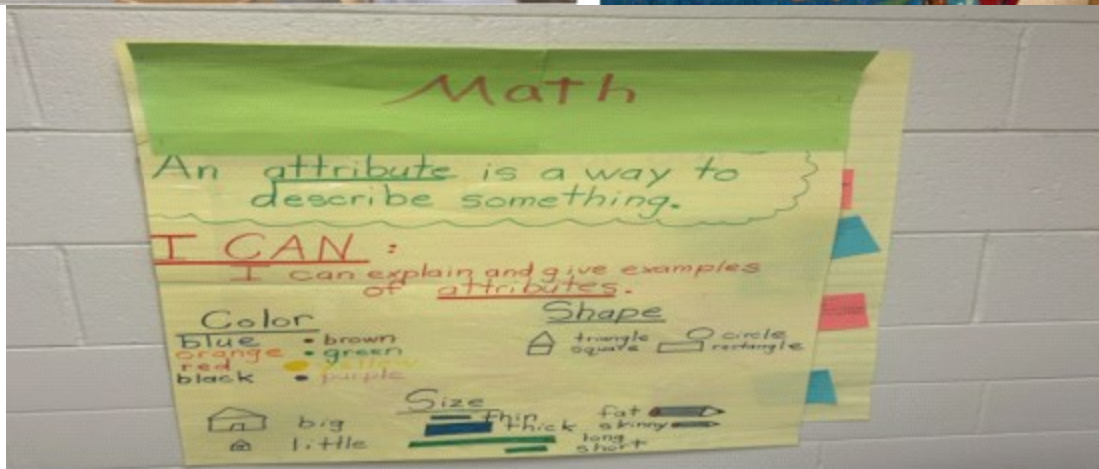 Math
An attribute is a way to
describe something.
I CAN:
I can explain and give examples
of attributes.
Color
blue • brown
orange • green
red yellow
black • purple
Shape
triangle circle
square rectangle
Size
big
little
thin
thick
long
short
fat
skinny